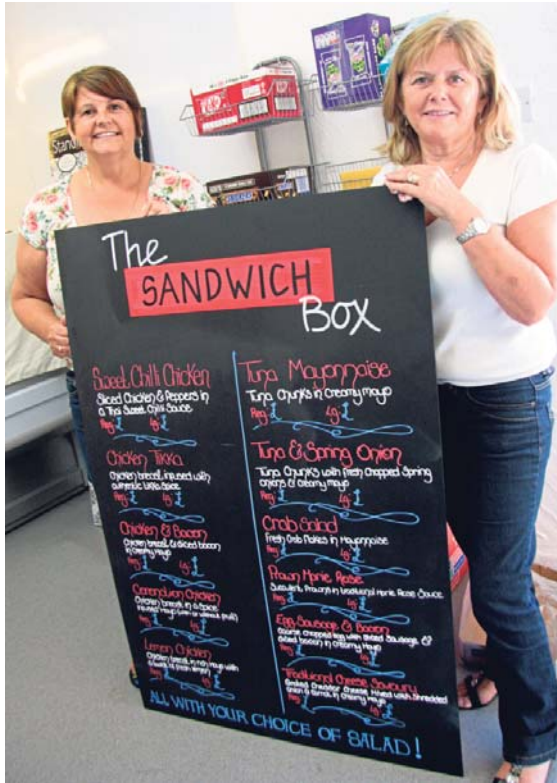 The
SANDWICH
BOX
Sweet Chilli Chicken
Sliced Chicken & Peppers in
a Thai Sweet Chilli Sauce
Reg £ Lg £
Chicken Tikka
Chicken breast infused with
authentic tikka spice
Reg £ Lg £
Chicken & Bacon
Chicken breast & diced bacon
in creamy mayo
Reg £ Lg £
Coronation Chicken
Chicken breast in a spice
infused mayo (with or without fruit)
Reg £ Lg £
Lemon Chicken
Chicken breast in rich mayo with
a twist of fresh lemon
Reg £ Lg £
Tuna Mayonnaise
Tuna Chunks in Creamy mayo
Reg £ Lg £
Tuna & Spring Onion
Tuna Chunks with Fresh Chopped Spring
onions & creamy mayo
Reg £ Lg £
Crab Salad
Fresh Crab flakes in Mayonnaise
Reg £ Lg £
Prawn Marie Rose
Succulent Prawns in traditional Marie Rose Sauce
Reg £ Lg £
Egg Sausage & Bacon
chopped egg with sliced Sausage &
diced bacon in creamy mayo
Reg £ Lg £
Traditional Cheese Savoury
Grated Cheddar Cheese Mixed with Shredded
Onion & Carrot in Creamy Mayo
Reg £ Lg £
ALL WITH YOUR CHOICE OF SALAD!
KitKat
Stand